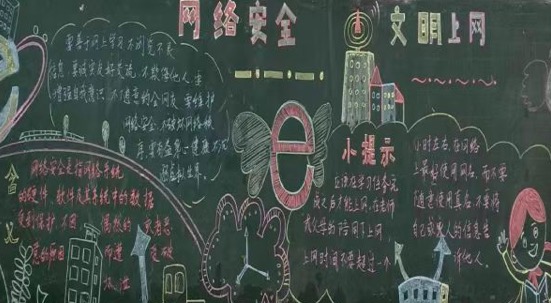 网络安全
文明上网
要善于网上学习 不浏览不良
信息 要诚实友好交流 不欺侮他人 要
增强自我意识 不随意约会网友 要维护
网络安全 不破坏网络秩
序 要有益身心健康 不沉
迷虚拟世界
网络安全是指网络系统
的硬件、软件及其系统中的数据
受到保护,不因 偶然的 或恶意
的原因 而遭 受破
小提示
应该在学习任务完
成之后才能上网,在老师
或父母的陪同下上网
上网时间不要超过一个
小时左右,在网络
上最好使用网名,而不要
随意使用真名,不要将
自己或家人的信息告
诉他人。
e